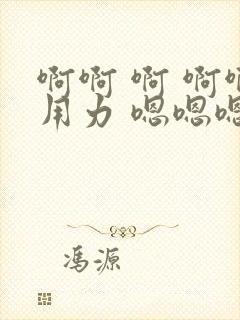 啊啊 啊 啊啊
用力 嗯嗯嗯
冯源